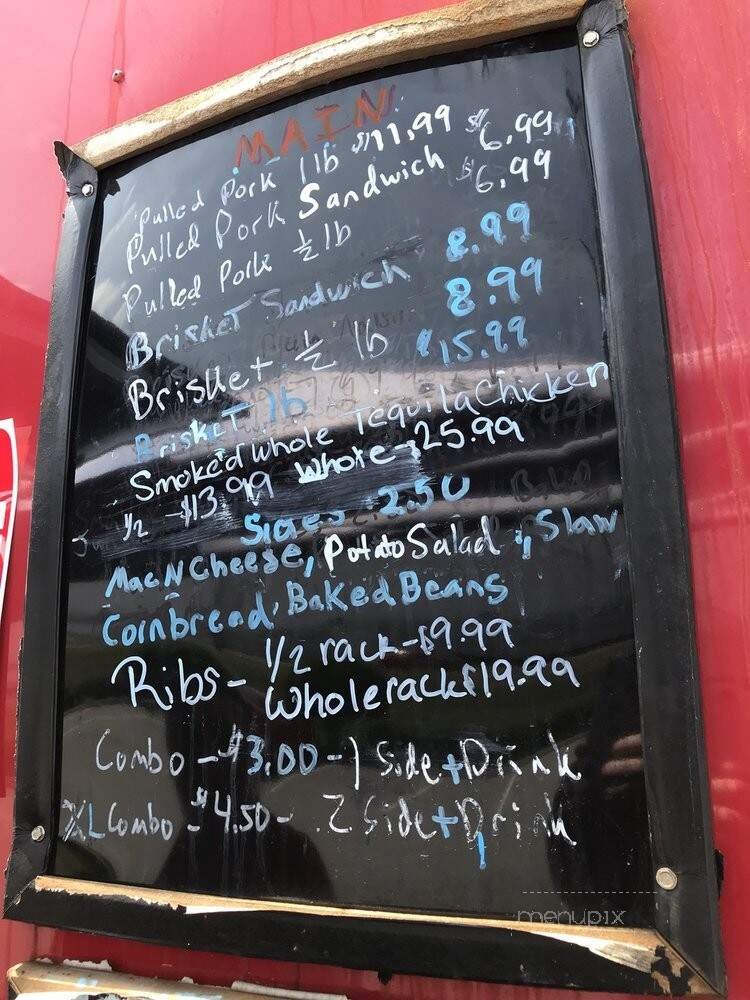 MAIN
Pulled Pork 1 lb $11.99
Pulled Pork Sandwich $6.99
Pulled Pork ½ lb $6.99
Brisket Sandwich 8.99
Brisket ½ lb 8.99
Brisket lb $15.99
Smoked Whole Tequila Chicken
1/2 - $13.99 Whole - $25.99
Sides 2.50
Mac N Cheese, Potato Salad, Slaw
Cornbread, Baked Beans
Ribs - 1/2 rack - $9.99
Whole rack $19.99
Combo - $3.00 - 1 Side + Drink
XL Combo - $4.50 - 2 Side + Drink
menupix